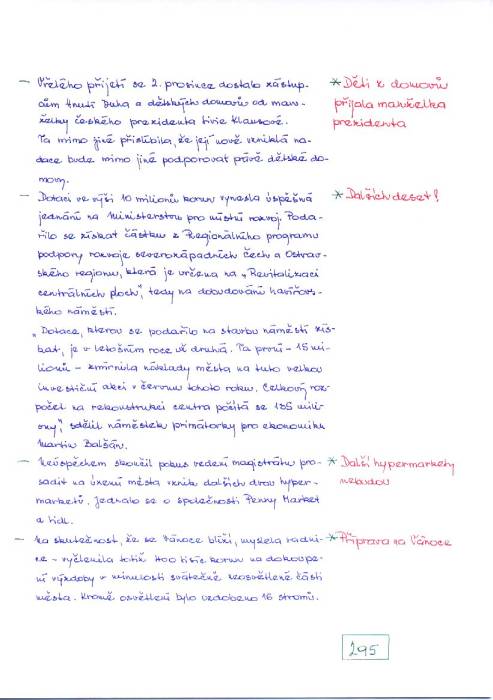 – Vřelého přijetí se 2. prosince dostalo zástup-
cům hnutí Duha a dětských domovů od man-
želky českého prezidenta Livie Klausové.
Ta mimo jiné přislíbila, že její nově vzniklá na-
dace bude mimo jiné podporovat právě dětské do-
movy.
* Děti z domovů
přijala manželka
prezidenta
– Dotaci ve výši 10 milionů korun vynesla úspěšná
jednání na Ministerstvu pro místní rozvoj. Poda-
řilo se získat částku z Regionálního programu
podpory rozvoje severozápadních Čech a Ostrav-
ského regionu, která je určena na „Revitalizaci
centrálních ploch", tedy na dobudování havířov-
ského náměstí.
* Dalších deset!
„Dotace, kterou se podařilo na stavbu náměstí zís-
kat, je v letošním roce už druhá. Ta první – 15 mi-
lionů – zmírnila náklady města na tuto velkou
investiční akci v červnu tohoto roku. Celkový roz-
počet na rekonstrukci centra počítá se 135 mili-
ony", sdělil náměstek primátorky pro ekonomiku
Martin Balšán.
– Neúspěchem skončil pokus vedení magistrátu pro-
sadit na území města vznik dalších dvou hyper-
marketů. Jednalo se o společnosti Penny Market
a Lidl.
* Další hypermarkety
nebudou
– Na skutečnost, že se Vánoce blíží, myslela radni-
ce – vyčlenila totiž 400 tisíc korun na dokoupe-
ní výzdoby v minulosti svátečně neosvětlené části
města. Kromě osvětlení bylo vzdobeno 16 stromů.
* Příprava na Vánoce
295